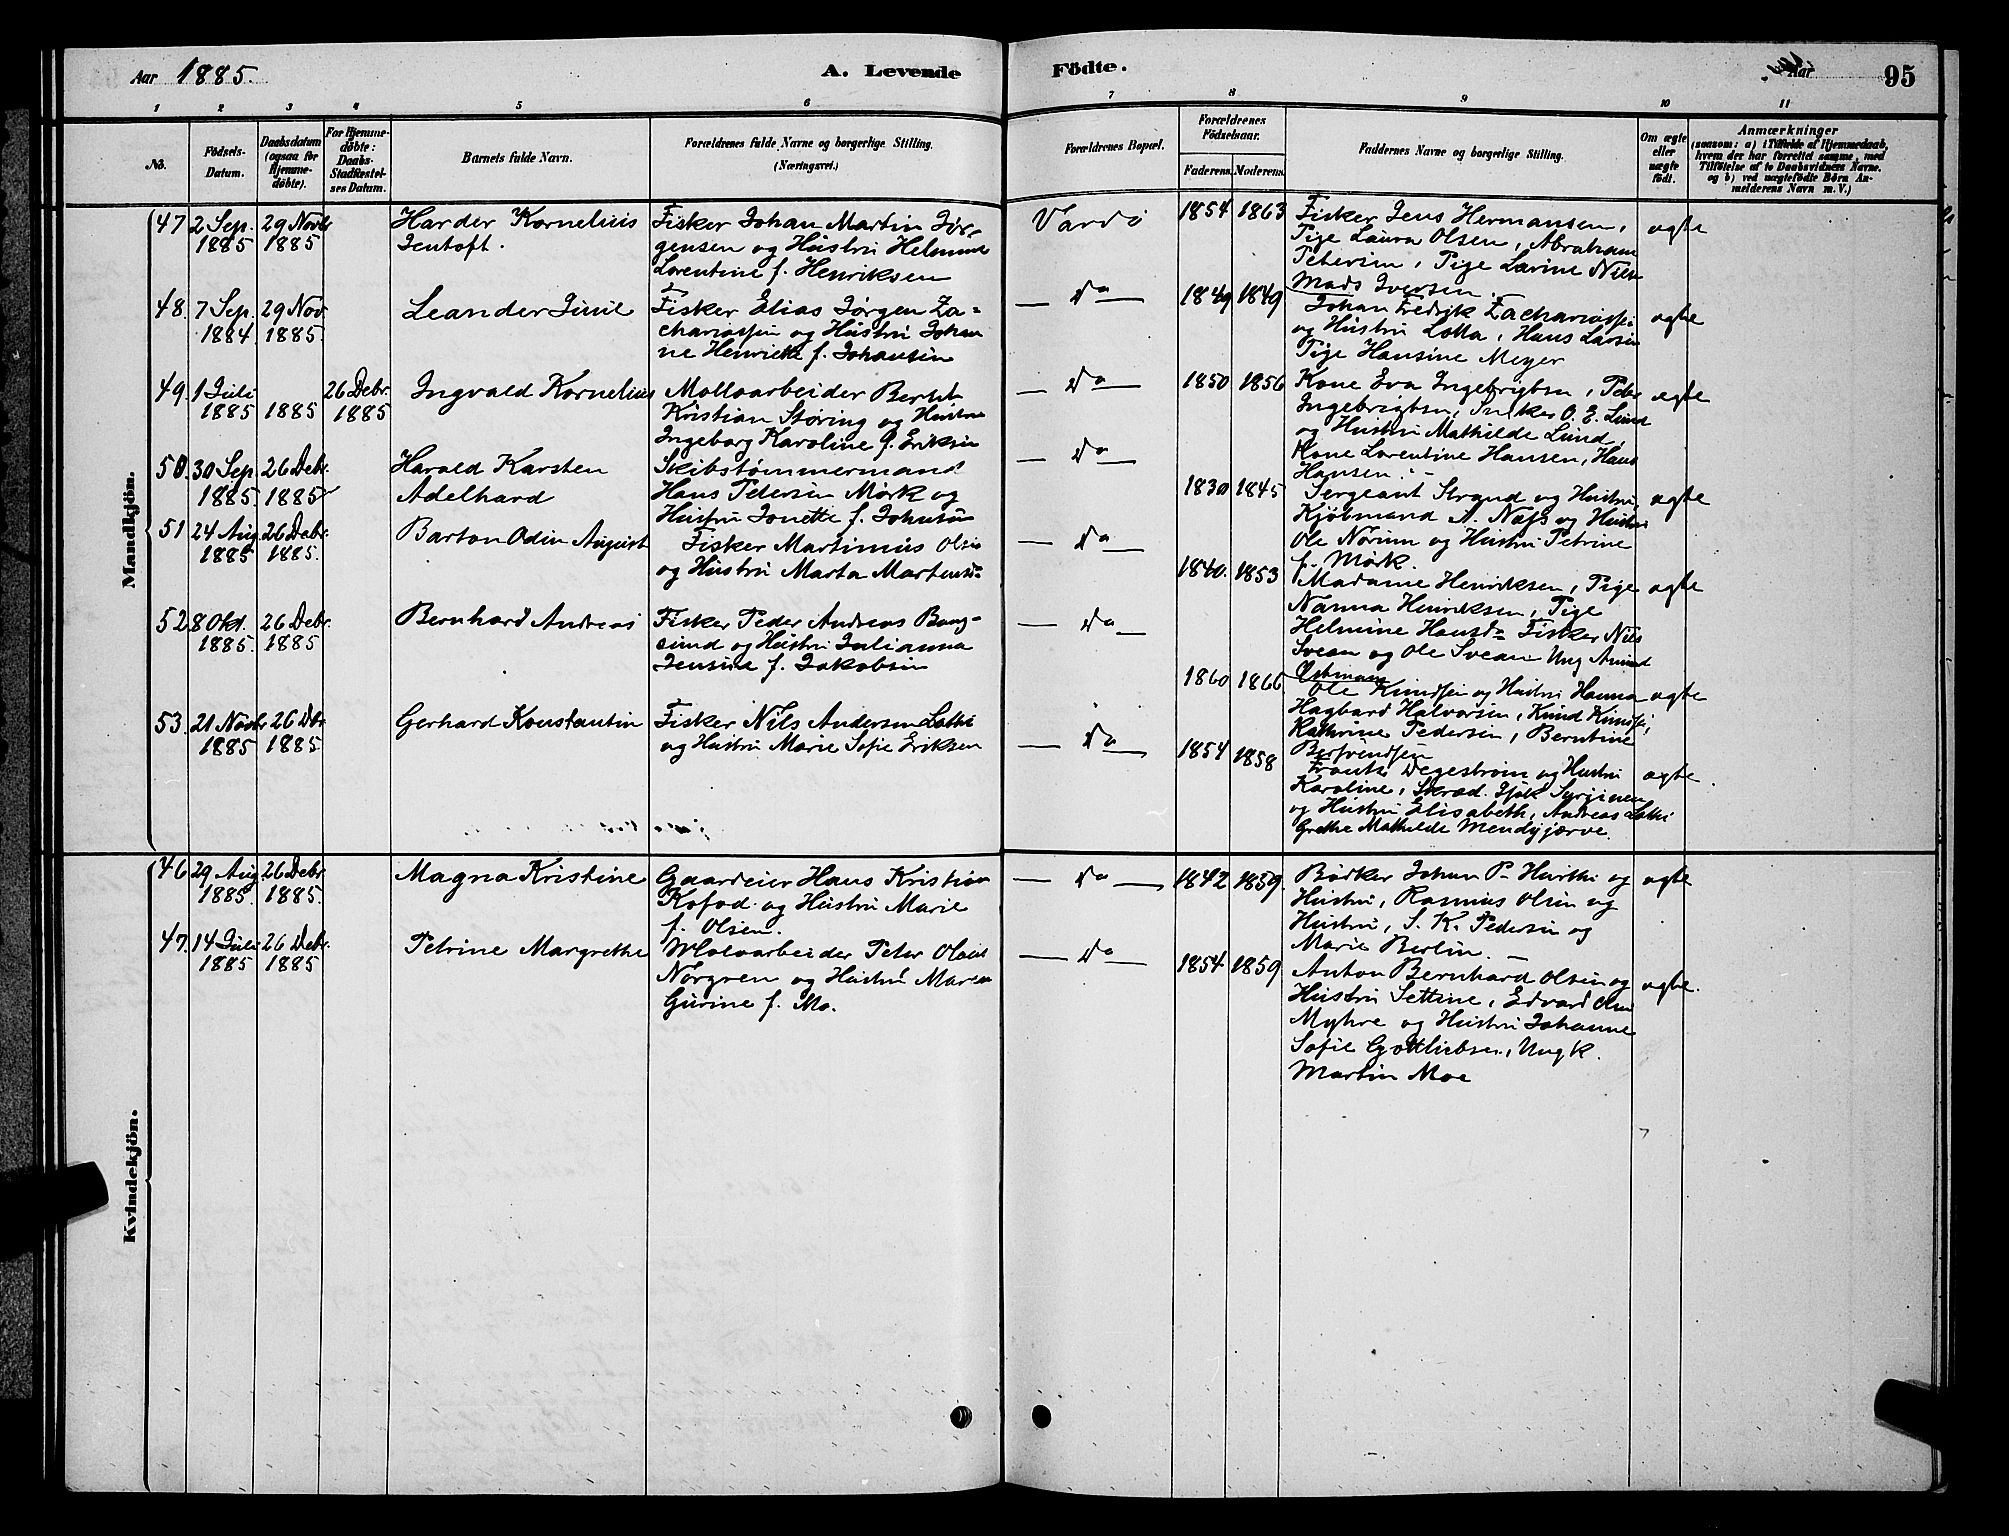 Aar 1885.
A. Levende Födte.
Aar 95
1 2 3 4 5 6 7 8 9 10 11
No.
Födsels-Datum.
Daabsdatum (ogsaa for Hjemme-döbte).
For Hjemme-döbte: Daabs-Stadfæstel-ses Datum.
Barnets fulde Navn.
Forældrenes fulde Navne og borgerlige Stilling. (Næringsvei.)
Forældrenes Bopæl.
Forældrenes Födselsaar.
Faderens. Moderens.
Faddernes Navne og borgerlige Stilling.
Om ægte eller uægte födt.
Anmærkninger
(saasom: a) i Tilfælde af Hjemmedaab, hvem der har forrettet samme, med Tilföielse af to Daabsvidners Navne. og b) ved uægtefödte Börn An-melderens Navn m. V.)
Mandkjön.
47 2 Sep. 1885 29 Novbr 1885
Harder Kornelius
Jentoft.
Fisker Johan Martin Jör-
gensen og Hustru Helmine
Lorentine f. Henriksen
Vardö
1854 1863
Fisker Jens Hermansen,
Pige Laura Olsen, Abraham
Petersen, Pige Lavine Nils
Mads Iversen.
ægte
48. 7 Sep. 1884 29 Nov. 1885.
Leander Juul
Fisker Elias Jörgen Za-
chariassen og Hustru Johan
ne Henriette f. Johansen
— Do —
1849 1849
Johan Fredrik Zachariassen
og Hustru Lotta, Hans Larsen
Pige Hansine Meyer
ægte
49. 1 Juli 1885 1885 26 Debr. 1885
Ingvald Kornelius
Molloarbeider Bernt
Kristian Störing og Hustru
Ingeborg Karoline f. Eriksen
— Do —
1850 1856
Kone Eva Ingebrigtsen, Peder
Ingebrigtsen, O. E. Lund
og Hustru Mathilde Lund,
Kone Lorentine Hansen, Hans
Hansen.
ægte
50. 30 Sep. 1885. 26 Debr. 1885
Harald Karsten
Adelhard
Skibstömmermand
Hans Petersen Mörk og
Hustru Jonette f. Johnsen
— Do —
1830 1845
Sergeant Strand og Hustru,
Kjöbmand A. Næss og Hustru
Ole Norum og Hustru Petrine
f. Mörk.
ægte
51 24 Aug. 1885 26 Debr. 1885.
Barton Odin August
Fisker Martinus Olsen
og Hustru Marta Martensd.
— Do —
1840. 1853
Madame Henriksen, Pige
Nanna Henriksen, Pige
Helmine Hansd. Fisker Nils
Svean og Ole Svean Ung Amund
Östmann
ægte
52 8 Okt. 1885. 26 Debr. 1885
Bernhard Andreas
Fisker Peder Andreas Bang-
sund og Hustru Julianna
Jensine f. Jakobsen
— Do —
1860 1866
Ole Knudsen og Hustru Hanna
Hagbard Halvorsen, Knud Knudsen,
Kathrine Pedersen, Berntine
Berfvendsen
ægte
53. 21 Novbr 1885 26 Debr. 1885
Gerhard Konstantin
Fisker Nils Andersen Lotki
og Hustru Marie Sofie Eriksen
— Do —
1854 1858
Frants Degeström og Hustru
Karoline, Skræd. Isak Syrjänen
og Hustru Elisabeth, Andreas Lotki
Grethe Mathilde Mendyjærve.
ægte
Kvindekjön.
46 29 Aug 1885. 26 Debr. 1885.
Magna Kristine
Gaardeier Hans Kristian
Kofod og Hustru Marie
f. Olsen.
— Do —
1842 1859.
Bödker Johan P. Hurtki og
Hustru, Rasmus Olsen og
Hustru, S. K. Pedersen og
Marie Berlin.
ægte
47. 14 Juli 1885 26 Debr. 1885
Petrine Margrethe
Moloarbeider Peter Olaus
Nörgren og Hustru Maren
Gurine f. Mo.
— Do —
1854 1859
Anton Bernhard Olsen og
Hustru Settine, Edvard Olsen
Myhre og Hustru Johanne
Sofie Gottliebsen, Ungk.
Martin Moe
ægte.